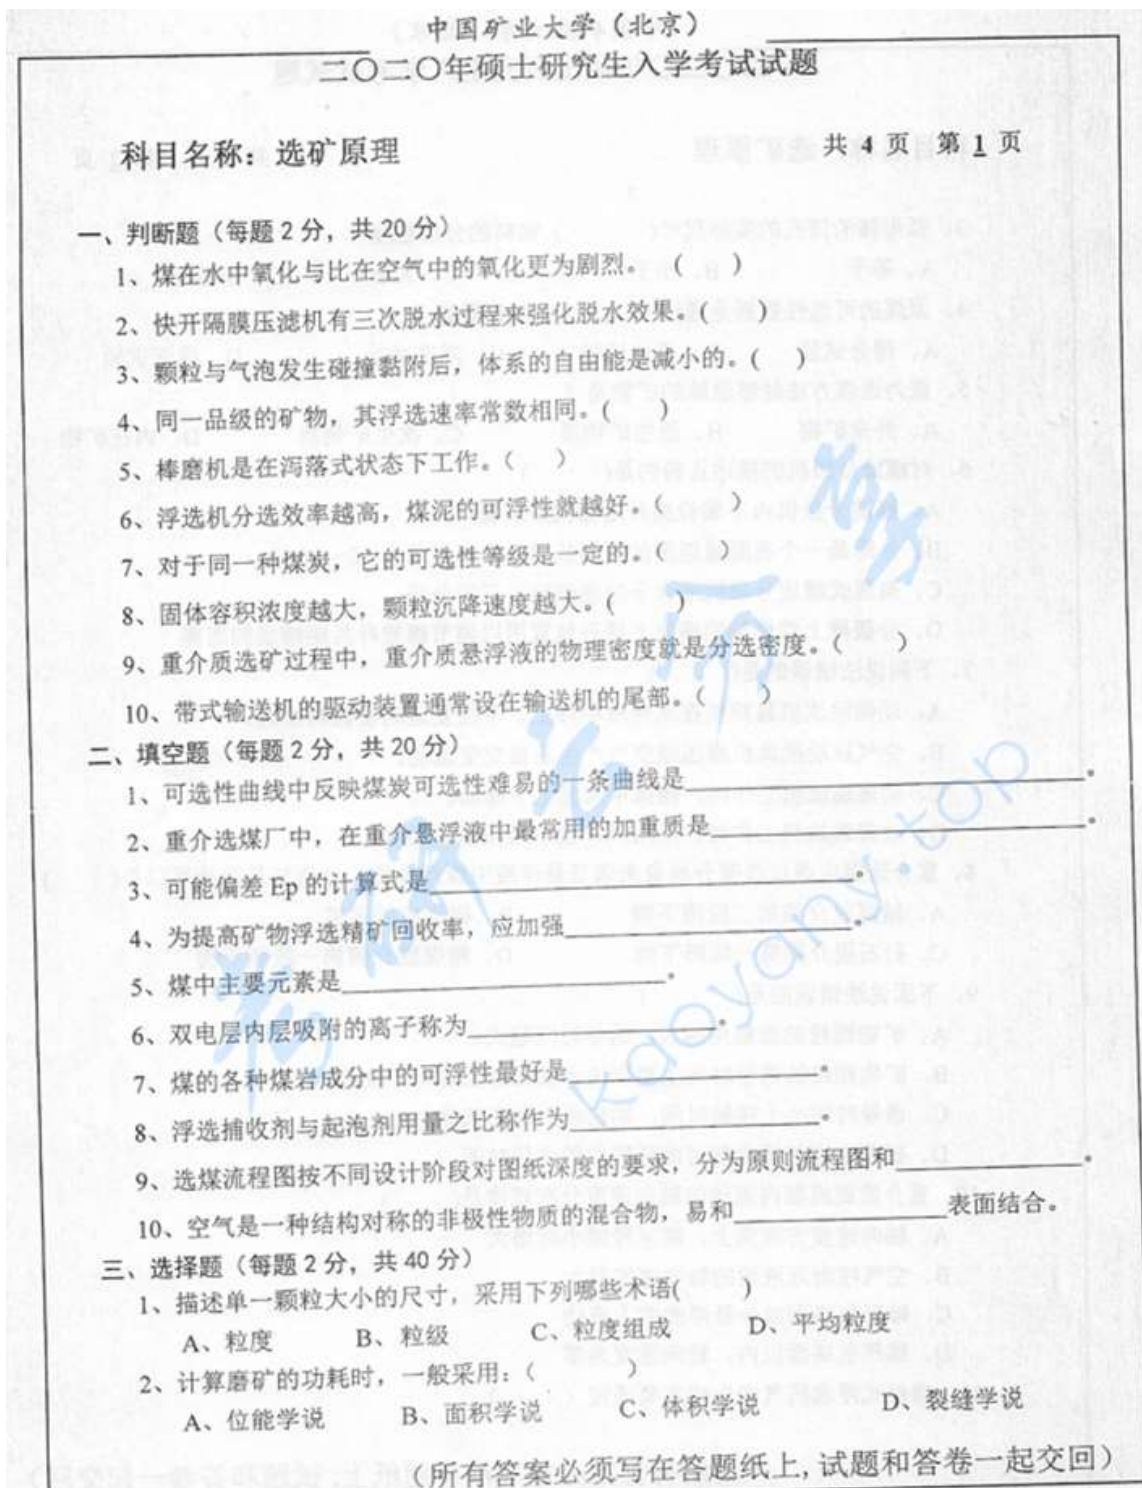 中国矿业大学（北京）
二〇二〇年硕士研究生入学考试试题
科目名称：选矿原理 共 4 页 第 1 页
一、判断题（每题 2 分，共 20 分）
1、煤在水中氧化与比在空气中的氧化更为剧烈。（ ）
2、快开隔膜压滤机有三次脱水过程来强化脱水效果。（ ）
3、颗粒与气泡发生碰撞黏附后，体系的自由能是减小的。（ ）
4、同一品级的矿物，其浮选速率常数相同。（ ）
5、棒磨机是在泻落式状态下工作。（ ）
6、浮选机分选效率越高，煤泥的可浮性就越好。（ ）
7、对于同一种煤炭，它的可选性等级是一定的。（ ）
8、固体容积浓度越大，颗粒沉降速度越大。（ ）
9、重介质选矿过程中，重介质悬浮液的物理密度就是分选密度。（ ）
10、带式输送机的驱动装置通常设在输送机的尾部。（ ）
二、填空题（每题 2 分，共 20 分）
1、可选性曲线中反映煤炭可选性难易的一条曲线是____________。
2、重介选煤厂中，在重介悬浮液中最常用的加重质是____________。
3、可能偏差 Ep 的计算式是____________。
4、为提高矿物浮选精矿回收率，应加强____________。
5、煤中主要元素是____________。
6、双电层内层吸附的离子称为____________。
7、煤的各种煤岩成分中的可浮性最好是____________。
8、浮选捕收剂与起泡剂用量之比称作为____________。
9、选煤流程图按不同设计阶段对图纸深度的要求，分为原则流程图和____________。
10、空气是一种结构对称的非极性物质的混合物，易和____________表面结合。
三、选择题（每题 2 分，共 40 分）
1、描述单一颗粒大小的尺寸，采用下列哪些术语( )
A、粒度 B、粒级 C、粒度组成 D、平均粒度
2、计算磨矿的功耗时，一般采用：（ ）
A、位能学说 B、面积学说 C、体积学说 D、裂缝学说
（所有答案必须写在答题纸上,试题和答卷一起交回）
kaoyany.top